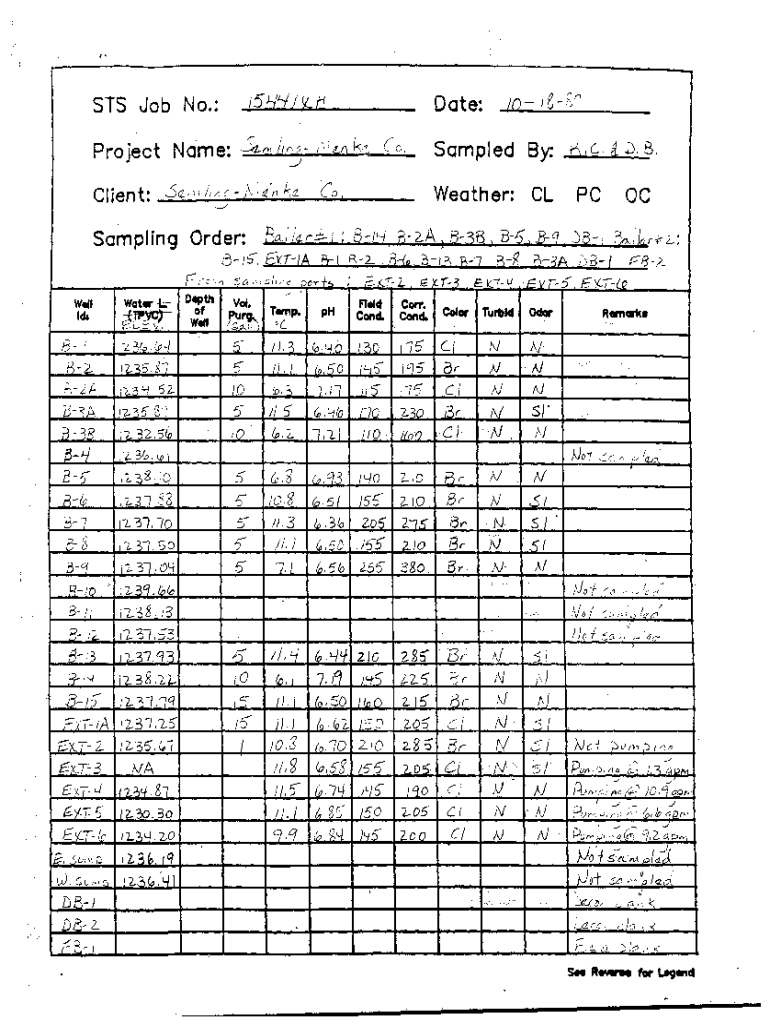 STS Job No.: Date: 10-18-8
Project Name: Co. Sampled By: K.C. & D.B.
Client: Co. Weather: CL PC OC
Sampling Order: Bailer #1: B-14 B-2A, B-3B, B-5, B-9 DB-1 Bailer #2:
B-15, EXT-1A B-1 B-2 B-6 B-13 B-7 B-8 B-3A DB-1 FB-2
From sampling ports: EXT-2, EXT-3, EXT-4, EXT-5, EXT-6
Well Id. Water L (TPVC) ELEV. Depth of Well Vol. Purg. (Gal.) Temp. °C pH Field Cond. Corr. Cond. Color Turbid Odor Remarks
B-1 1236.64 5 11.3 6.40 130 175 Cl N N
B-2 1235.87 5 11.1 6.50 145 195 Br N N
B-2A 1234.52 10 6.3 7.17 115 175 Cl N N
B-3A 1235.8 5 11.5 6.46 170 230 Br N Sl
B-3B 1232.56 10 6.2 7.21 110 Cl N N
B-4 1236.61 Not sampled
B-5 5 6.8 6.93 140 210 Br N N
B-6 1237.88 5 10.8 6.51 155 210 Br N Sl
B-7 1237.70 5 11.3 6.36 205 275 Br N Sl
B-8 1237.50 5 11.1 6.50 155 210 Br N Sl
B-9 1237.04 5 7.1 6.56 255 380 Br N N
B-10 1239.66 Not sampled
B-11 1238.13 Not sampled
B-12 1237.53 Not sampled
B-13 1237.93 5 11.4 6.44 210 285 Br N Sl
B-14 1238.22 10 6.1 7.19 145 225 Br N N
B-15 1237.79 15 11.1 6.50 160 215 Br N N
EXT-1A 1237.25 15 11.1 6.62 150 205 Cl N Sl
EXT-2 1235.67 1 10.8 6.70 210 285 Br N Sl Not pumping
EXT-3 NA 11.8 6.58 155 205 Cl N Sl Pumping @ 13 gpm
EXT-4 1234.87 11.5 6.74 145 190 Cl N N Pumping @ 10.9 gpm
EXT-5 1230.30 11.1 6.85 150 205 Cl N N Pumping @ 6.6 gpm
EXT-6 1234.20 9.9 6.84 145 200 Cl N N Pumping @ 9.2 gpm
E. Sump 1236.19 Not sampled
W. Sump 1236.41 Not sampled
DB-1 blank
DB-2 blank
FB-1 blank
See Reverse for Legend